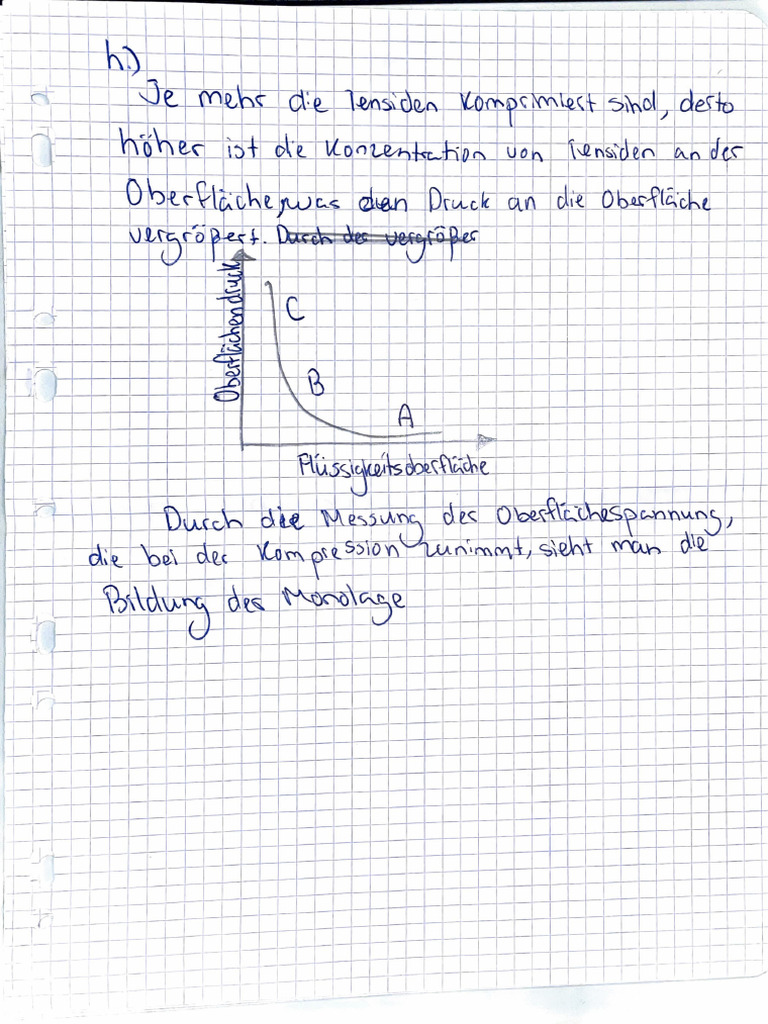 h.)
Je mehr die Tensiden komprimiert sind, desto
höher ist die Konzentration von Tensiden an der
Oberfläche, was den Druck an die Oberfläche
vergrößert. Durch der vergrößer
Oberflächendruck
C
B
A
Flüssigkeitsoberfläche
Durch die Messung der Oberflächespannung,
die bei der Kompression zunimmt, sieht man die
Bildung der Monolage